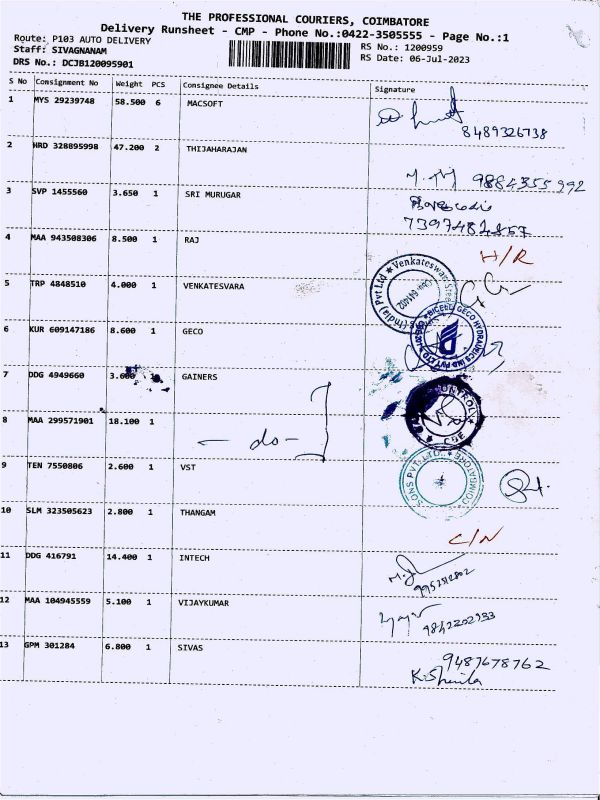 THE PROFESSIONAL COURIERS, COIMBATORE
Delivery Runsheet - CMP - Phone No.:0422-3505555 - Page No.:1
Route: P103 AUTO DELIVERY
Staff: SIVAGNANAM
RS No.: 1200959
DRS No.: DCJB120095901
RS Date: 06-Jul-2023
S No Consignment No Weight PCS Consignee Details Signature
1 MYS 29239748 58.500 6 MACSOFT
8489326738
2 HRD 328895998 47.200 2 THIJAHARAJAN
9884355992
3 SVP 1455560 3.650 1 SRI MURUGAR
4 MAA 943508306 8.500 1 RAJ H/R
5 TRP 4848510 4.000 1 VENKATESVARA
6 KUR 609147186 8.600 1 GECO
7 DDG 4949660 1 GAINERS
8 MAA 299571901 18.100 1 - do -
9 TEN 7550806 2.600 1 VST
10 SLM 323505623 2.800 1 THANGAM C/N
11 DDG 416791 14.400 1 INTECH
12 MAA 104945559 5.100 1 VIJAYKUMAR
9842202933
13 GPM 301284 6.800 1 SIVAS
9487678762
K. Sheila